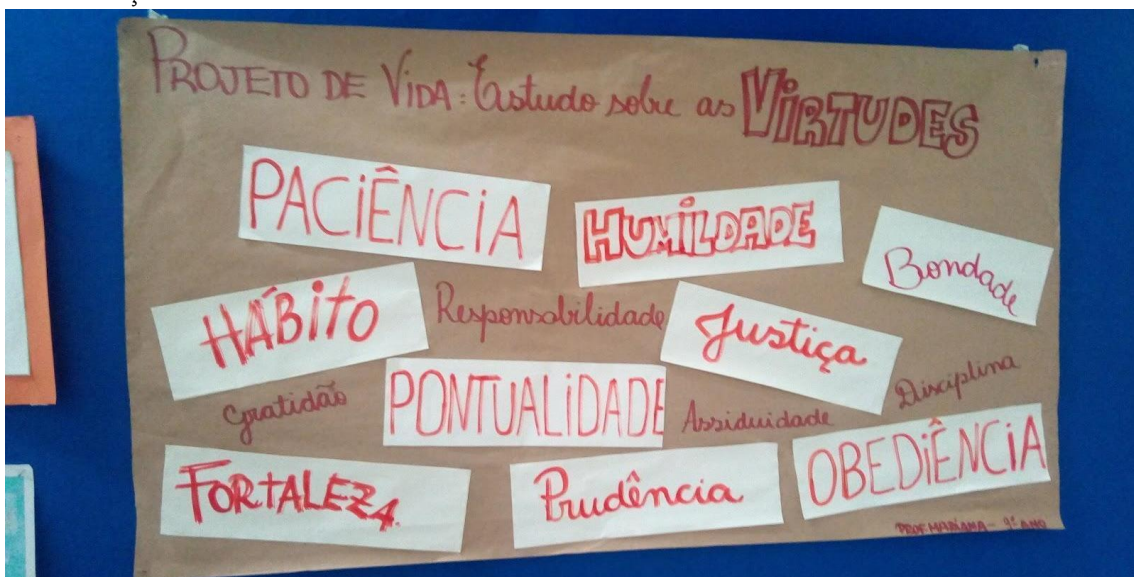 PROJETO DE VIDA: Estudo sobre as VIRTUDES
PACIÊNCIA
HUMILDADE
Bondade
HÁBITO
Responsabilidade
Justiça
Gratidão
PONTUALIDADE
Assiduidade
Disciplina
FORTALEZA
Prudência
OBEDIÊNCIA
PROF. MARIANA - 9º ANO